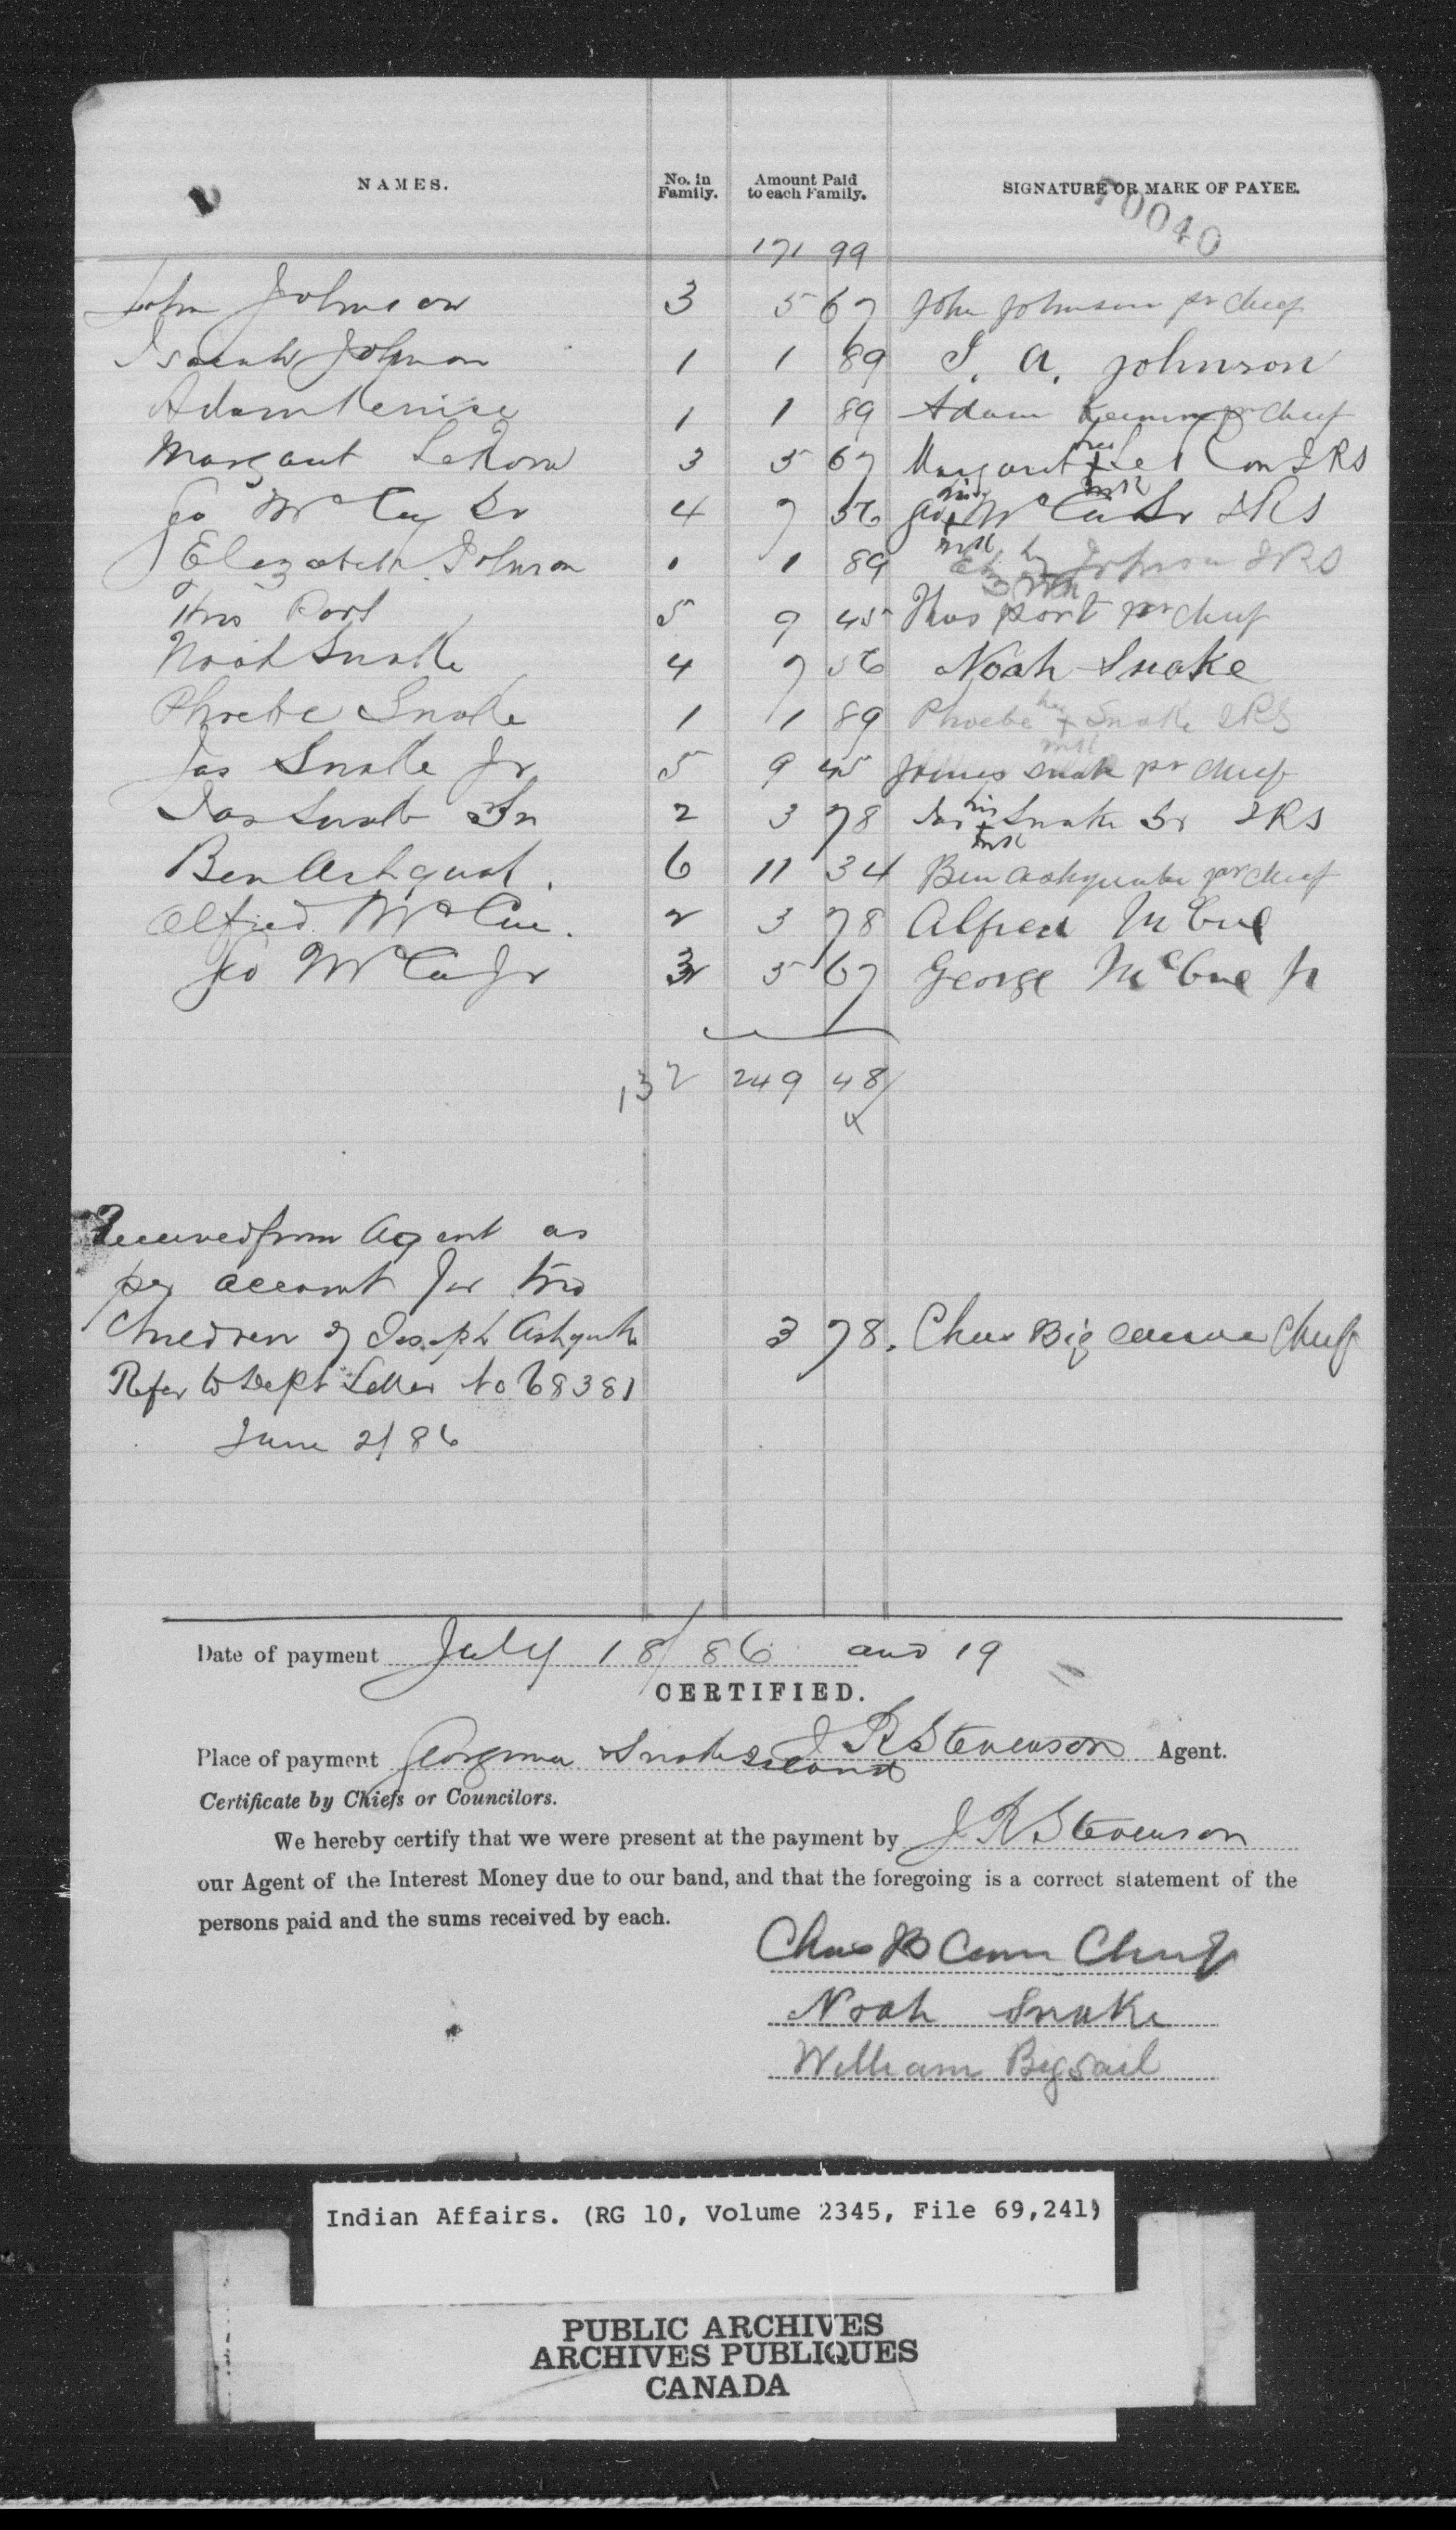 NAMES. No. in Family. Amount Paid to each Family. SIGNATURE OR MARK OF PAYEE.
70040
171 99
John Johnson 3 5 67 John Johnson pr Chief
Isaiah Johnson 1 1 89 I. A. Johnson
Adam 1 1 89 Adam pr Chief
Margaret 3 5 67 Margaret her x mk JRS
Geo McCue Sr 4 7 56 Geo his x mk McCue Sr JRS
Elizabeth Johnson 1 1 89 Johnson JRS
Thos Port 5 9 45 Thos port pr chief
Noah Snake 4 7 56 Noah Snake
Phoebe Snake 1 1 89 Phoebe her x mk Snake JRS
Jas Snake Jr 5 9 45 James Snake pr chief
Jas Snake Sr 2 3 78 Jas his x mk Snake Sr JRS
Ben Ashquab. 6 11 34 Ben Ashquabe pr chief
Alfred McCue. 2 3 78 Alfred McCue
Geo McCue Jr 3 5 67 George McCue Jr
132 249 48
x
Received from Agent as
per account for two
Children of Joseph Ashquabe 3 78. Chas Big Canoe Chief
Refer to Dept Letter No 68381
June 2/86
Date of payment July 18/86 and 19
CERTIFIED.
Place of payment Georgina Snake Island J R Stevenson Agent.
Certificate by Chiefs or Councilors.
We hereby certify that we were present at the payment by J R Stevenson
our Agent of the Interest Money due to our band, and that the foregoing is a correct statement of the
persons paid and the sums received by each.
Chas B Canoe Chief
Noah Snake
William Bigsail
Indian Affairs. (RG 10, Volume 2345, File 69,241)
PUBLIC ARCHIVES
ARCHIVES PUBLIQUES
CANADA